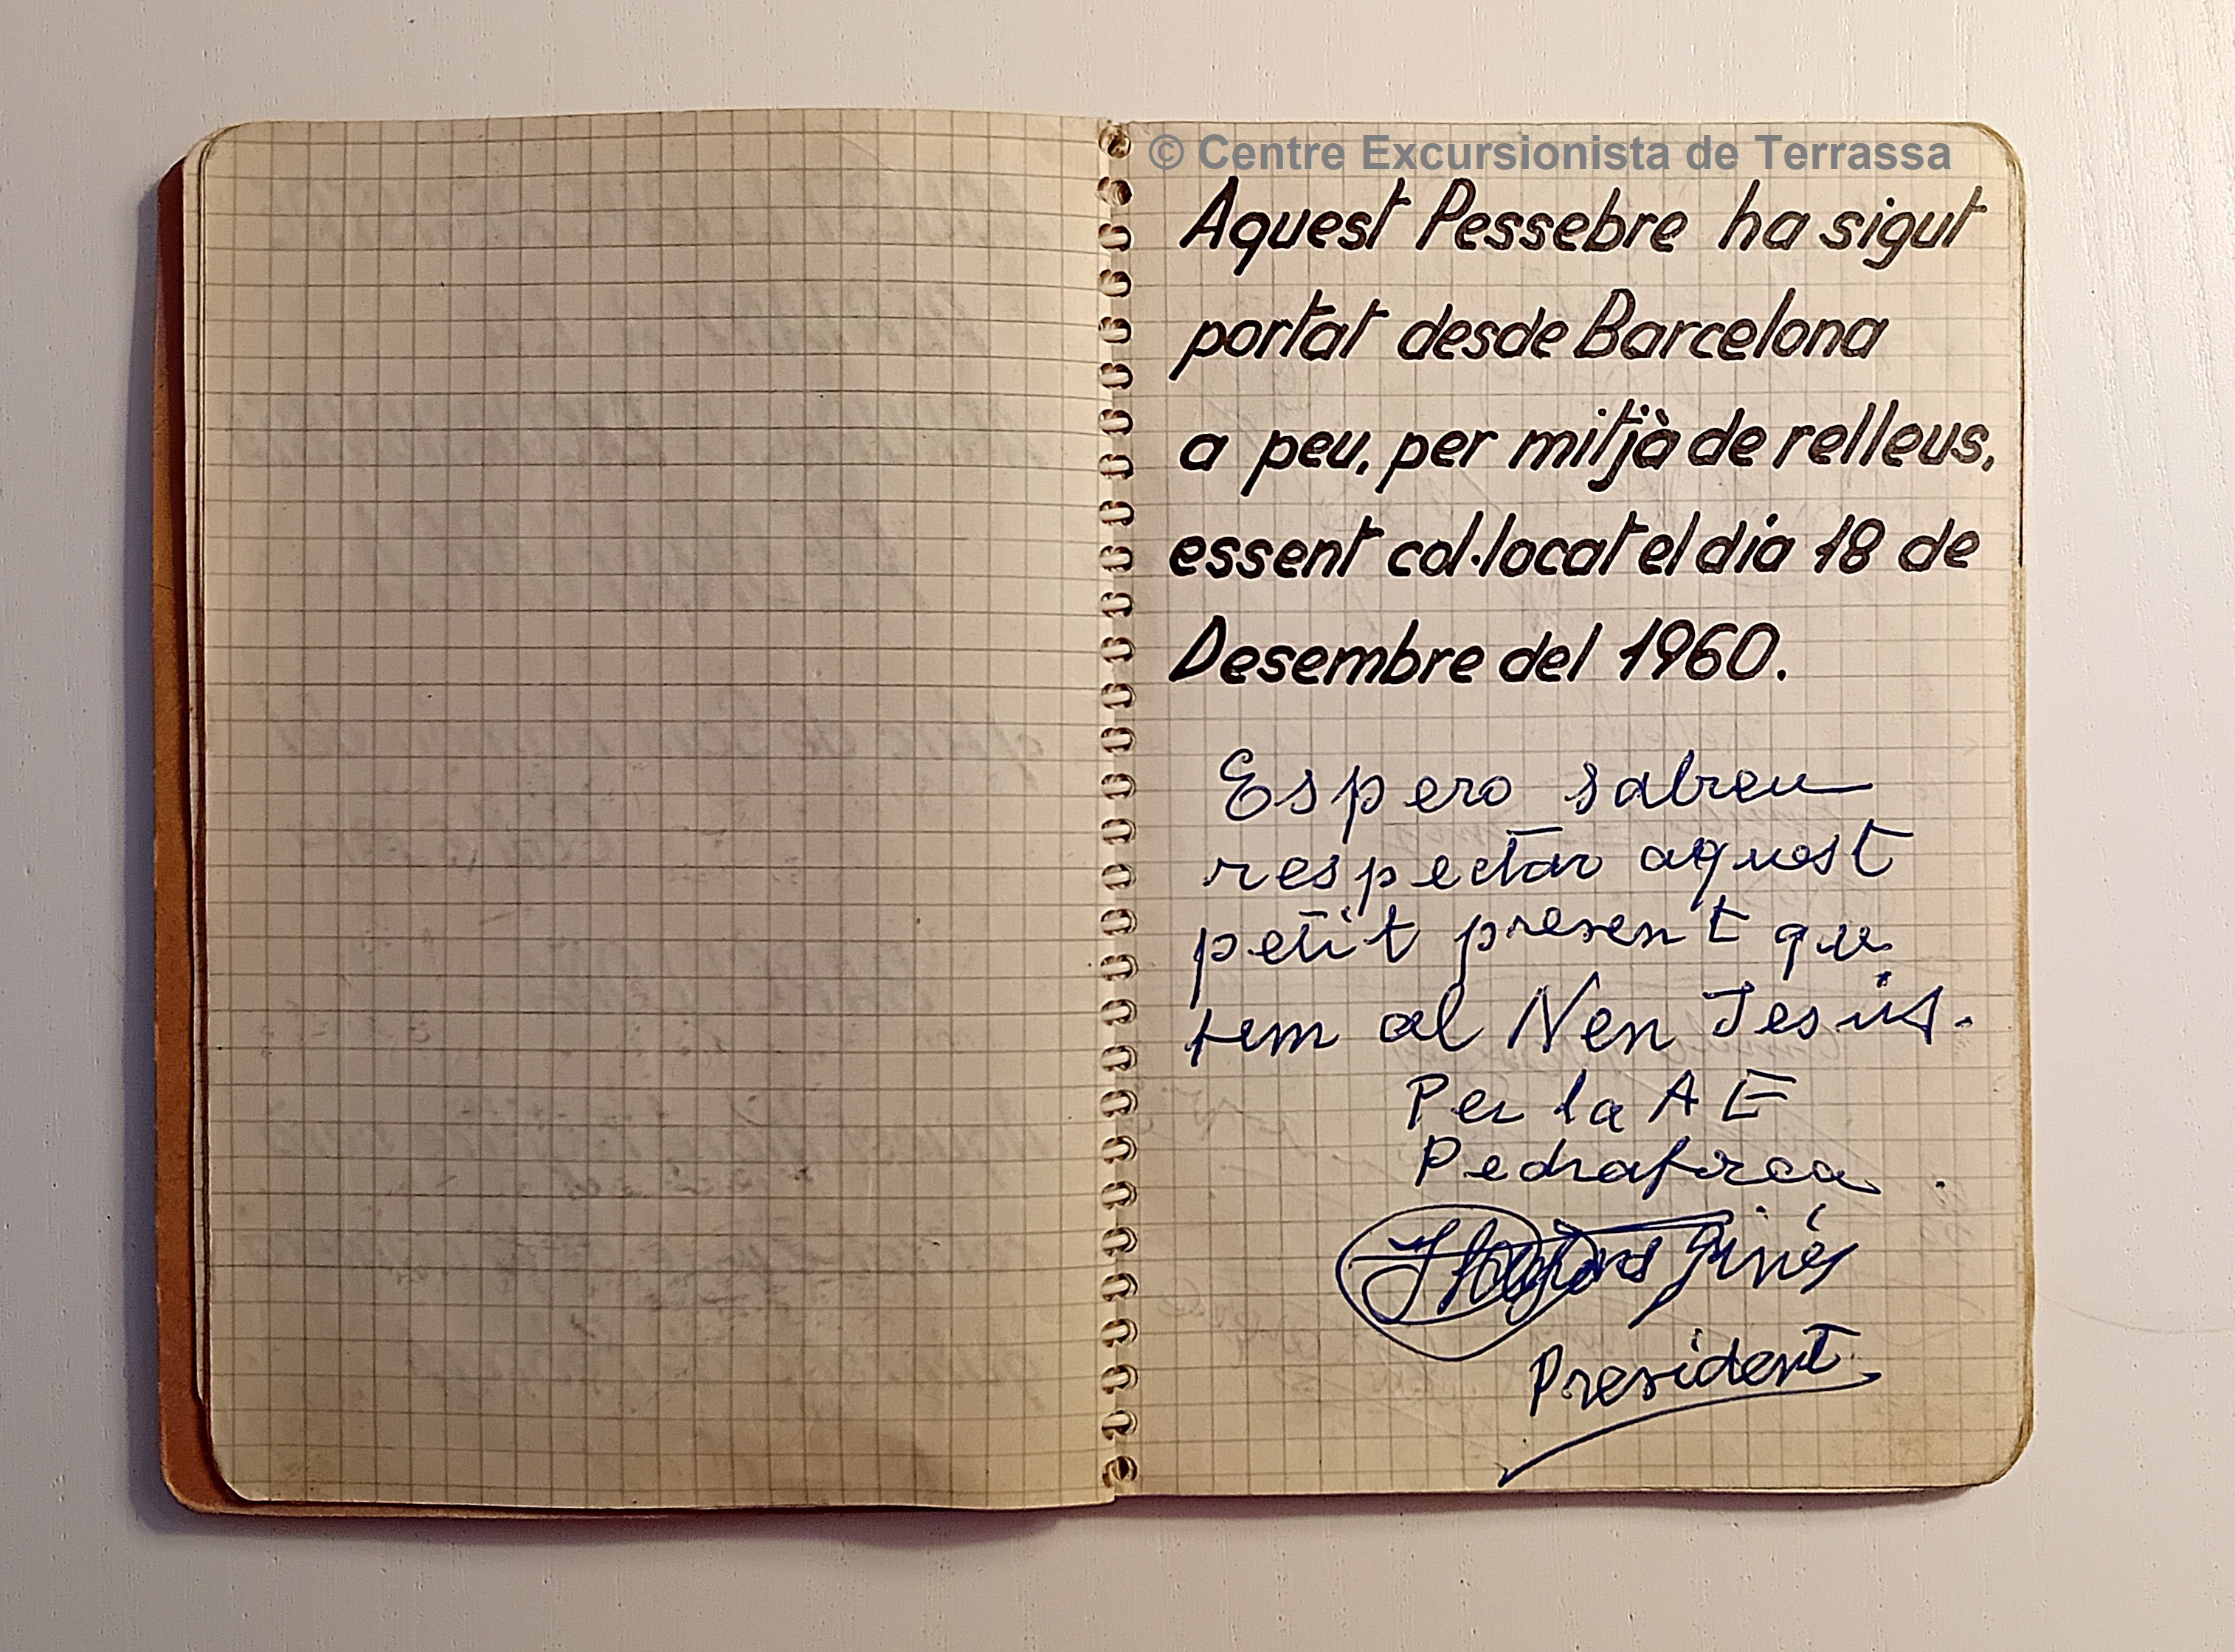 © Centre Excursionista de Terrassa
Aquest Pessebre ha sigut
portat desde Barcelona
a peu, per mitjà de relleus,
essent col·locat el dia 18 de
Desembre del 1960.
Espero sabreu
respectar aquest
petit present qu
fem al Nen Jesús.
Per la A E
Pedraforca
Giné
President